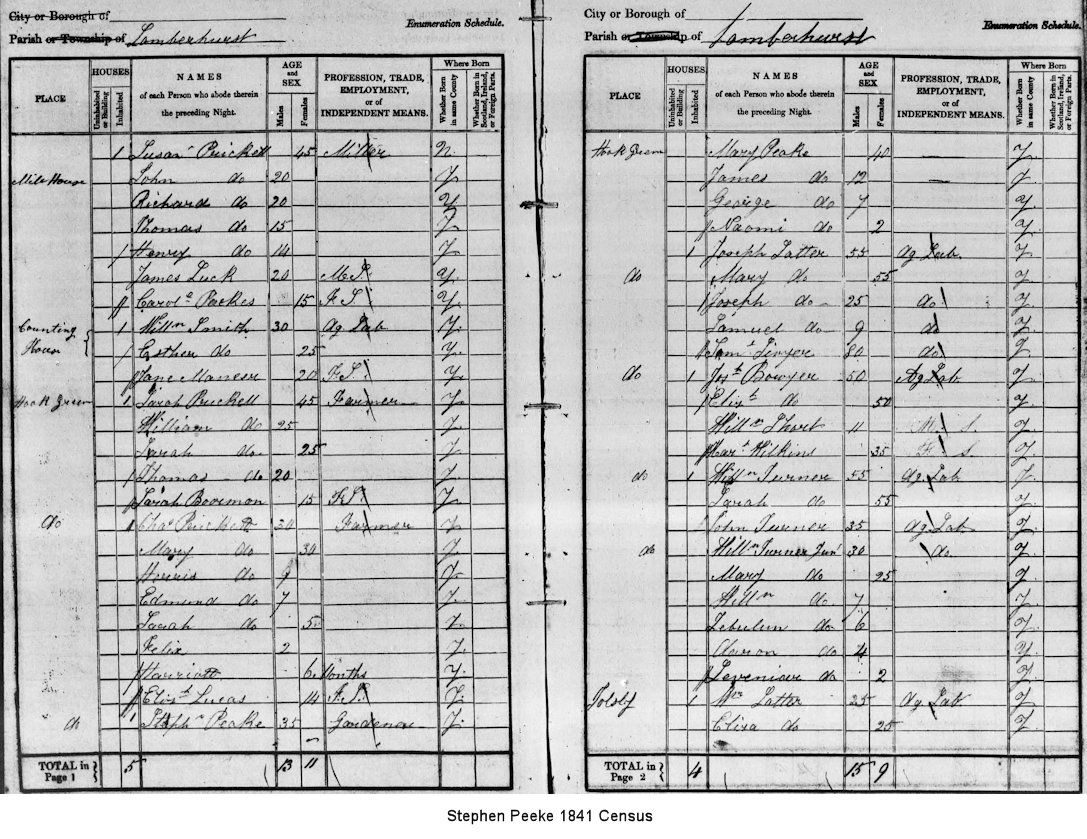 City or Borough of
Enumeration Schedule.
Parish or Township of Lamberhurst
PLACE
HOUSES
Uninhabited or Building
Inhabited
NAMES
of each Person who abode therein the preceding Night.
AGE and SEX
Males
Females
PROFESSION, TRADE, EMPLOYMENT, or of INDEPENDENT MEANS.
Where Born
Whether Born in same County
Whether Born in Scotland, Ireland, or Foreign Parts.
1 Susan Prickett 45 Miller N.
Mile House John do 20 Y
Richard do 20 Y
Thomas do 15 Y
Henry do 14 Y
James Luck 20 M.S. Y
Carol.e 15 F.S. Y
Counting House 1 Willm Smith 30 Ag Lab Y
Esther do 25 Y
Jane 20 F.S. Y
Hook Green 1 Sarah Prickett 45 Farmer Y
William do 25 Y
Sarah do 25 Y
Thomas do 20 Y
Sarah 15 F.S. Y
do 1 Chas Prickett 30 Farmer Y
Mary do 30 Y
do 9 Y
Edmund do 7 Y
Sarah do 5 Y
Felix 2 Y
Harriott 6 Months Y
Elizth Lucas 14 F.S. Y
do 1 Stephn Peake 35 Gardener Y
TOTAL in Page 1 5 13 11
City or Borough of
Enumeration Schedule.
Parish or Township of Lamberhurst
PLACE
HOUSES
Uninhabited or Building
Inhabited
NAMES
of each Person who abode therein the preceding Night.
AGE and SEX
Males
Females
PROFESSION, TRADE, EMPLOYMENT, or of INDEPENDENT MEANS.
Where Born
Whether Born in same County
Whether Born in Scotland, Ireland, or Foreign Parts.
Hook Green Mary Peake 40 Y
James do 12 Y
George do 7 Y
Naomi do 2 Y
1 Joseph Latter 55 Ag Lab Y
do Mary do 55 Y
Joseph do 25 do Y
Samuel do 9 do Y
80 do Y
do 1 Bowyer 50 Ag Lab Y
Elizth do 50 Y
Willm Short 11 M. S. Y
Wilkins 35 F. S. Y
do 1 Willm Turner 55 Ag Lab Y
Sarah do 55 Y
John Turner 35 Ag Lab Y
do Willm Turner Junr 30 do Y
Mary do 25 Y
Willm do 7 Y
Zebulun do 6 Y
Aaron do 4 Y
do 2 Y
1 Wm Latter 25 Ag Lab Y
Eliza do 25 Y
TOTAL in Page 2 4 15 9
Stephen Peeke 1841 Census